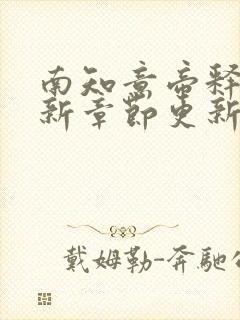 南知意帝释
新章节更新
戴姆勒-奔馳公